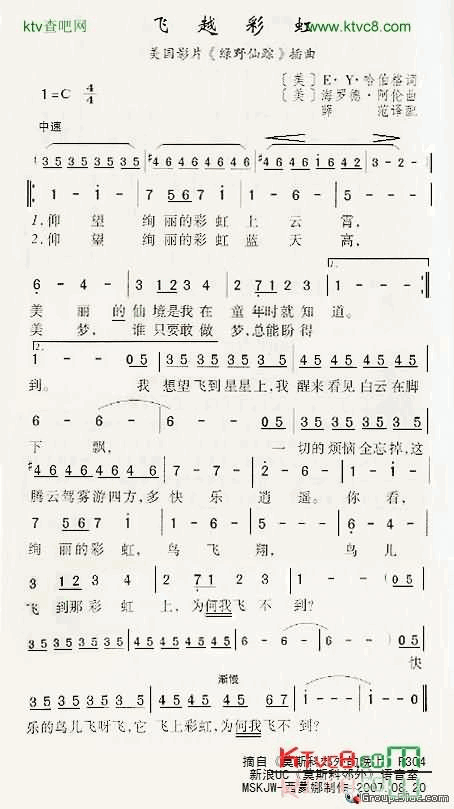 ktv查吧网
www.ktvc8.com
飞越彩虹
美国影片《绿野仙踪》插曲
[美] E·Y·哈伯格词
[美] 海罗德·阿伦曲
薛 范译配
1=C 4/4
中速
35353535 #46464646 35353535 #4646i642 3-3-
1 - i - 7 5 6 7 i 1 - 6 - 5 - - -
1.仰 望 绚丽的彩虹上云霄,
2.仰 望 绚丽的彩虹蓝天高,
6 - 4 - 3 1 2 3 4 2 7 1 2 3 1 - - -
美丽的仙境是我在童年时就知道。
美梦,谁只要敢做梦,总能盼得
2.
1 - - 05 35353535 #46464646
到。 我想望飞到星星上,我醒来看见白云在脚
6 - 6 - 6 - - 05 35353535
下飘, 一切的烦恼全忘掉,这
#46464646 7 - 7 - 2 - 6 - 1 - i -
腾云驾雾游四方,多快乐逍遥。你看,
7 5 6 7 i 1 - 6 - 5 - - - 6 - 4 -
绚丽的彩虹,鸟飞翔, 鸟儿
3 1 2 3 4 2 7 1 2 3 1 - - -
飞到那彩虹上,为何我飞不到?
快
渐慢
乐的鸟儿飞呀飞,它飞上彩虹,为何我飞不到?
新浪UC《莫斯科郊外》语音室
MSKJW-西蒙娜制作·2007.08.20